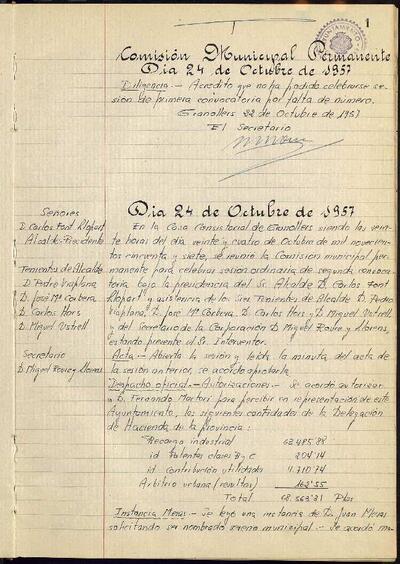 1
AYUNTAMIENTO
Comisión Municipal Permanente
Dia 24 de Octubre de 1957
Diligencia.- Acredito que no ha podido celebrarse se-
sion de primera convocatoria por falta de número.
Granollers 22 de Octubre de 1957
El Secretario
Dia 24 de Octubre de 1957
Señores
D. Carlos Font Llopart
Alcalde-Presidente
Tenientes de Alcalde
D. Pedro Viaplana
D. José Mª Corbera
D. Carlos Hors
D. Miguel Ustrell
Secretario
D. Miguel Roure y Llorens
En la Casa Consistorial de Granollers siendo las vein-
te horas del dia veinte y cuatro de Octubre de mil novecien-
tos cincuenta y siete, se reunió la Comision municipal per-
manente para celebrar sesión ordinaria de segunda convoca-
toria bajo la presidencia del Sr. Alcalde D. Carlos Font
Llopart y asistencia de los Sres Tenientes de Alcalde D. Pedro
Viaplana, D. José Mª Corbera, D. Carlos Hors y D. Miguel Ustrell,
y del Secretario de la Corporación D. Miguel Roure y Llorens,
estando presente el Sr. Interventor.
Acta.- Abierta la sesión y leida la minuta del acta de
la sesión anterior, se acordo aprobarla.
Despacho oficial.- Autorizaciones.- Se acordó autorizar
a D. Fernando para percibir en representación de este
Ayuntamiento, las siguientes cantidades de la Delegación
de Hacienda de la provincia:
Recargo industrial
id Patentes clases B y C 204'14
id contribución utilidades
Arbitrio urbana (resultas)
Total Ptas
Instancia Meras.- Se leyó una instancia de D. Juan Meras
solicitando ser nombrado sereno municipal.- Se acordó ma-